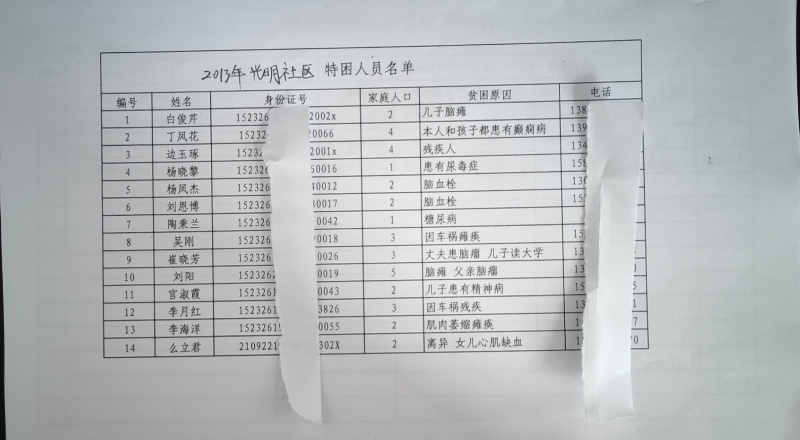 2013年光明社区 特困人员名单
编号 姓名 身份证号 家庭人口 贫困原因 电话
1 白俊芹 15232 2002x 2 儿子脑瘫 138
2 丁凤花 152326 20066 4 本人和孩子都患有癫痫病 139
3 边玉琢 152326 2001x 4 残疾人 134
4 杨晓黎 152326 50016 1 患有尿毒症 158
5 杨凤杰 152326 40012 2 脑血栓 130
6 刘恩博 152326 30017 2 脑血栓 15
7 陶秉兰 152326 20042 1 糖尿病
8 吴刚 152326 90018 3 因车祸瘫痪 15
9 崔晓芳 152326 0026 3 丈夫患脑瘤 儿子读大学 13
10 刘阳 1523262 0019 5 脑瘫 父亲脑瘤 1
11 宫淑霞 1523261 0043 2 儿子患有精神病 1 5
12 李月红 1523261 3826 3 因车祸残疾 1 1
13 李海洋 15232619 0055 2 肌肉萎缩瘫痪 1 7
14 么立君 21092219 302X 2 离异 女儿心肌缺血 1 0